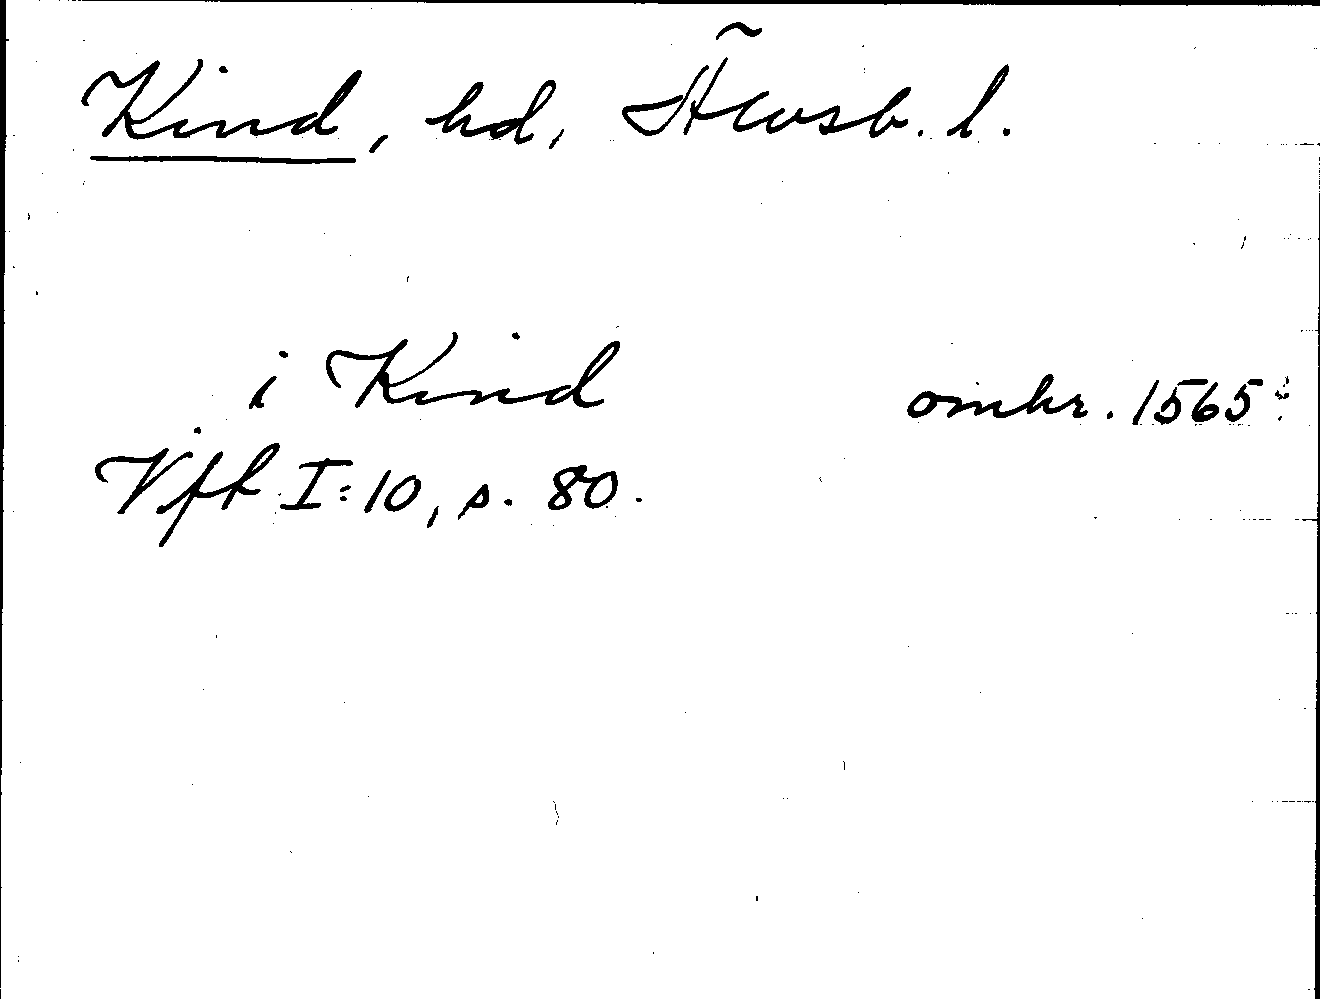 Kind, hd, Älvsb. l.
i Kind omkr. 1565
Vft I:10, s. 80.